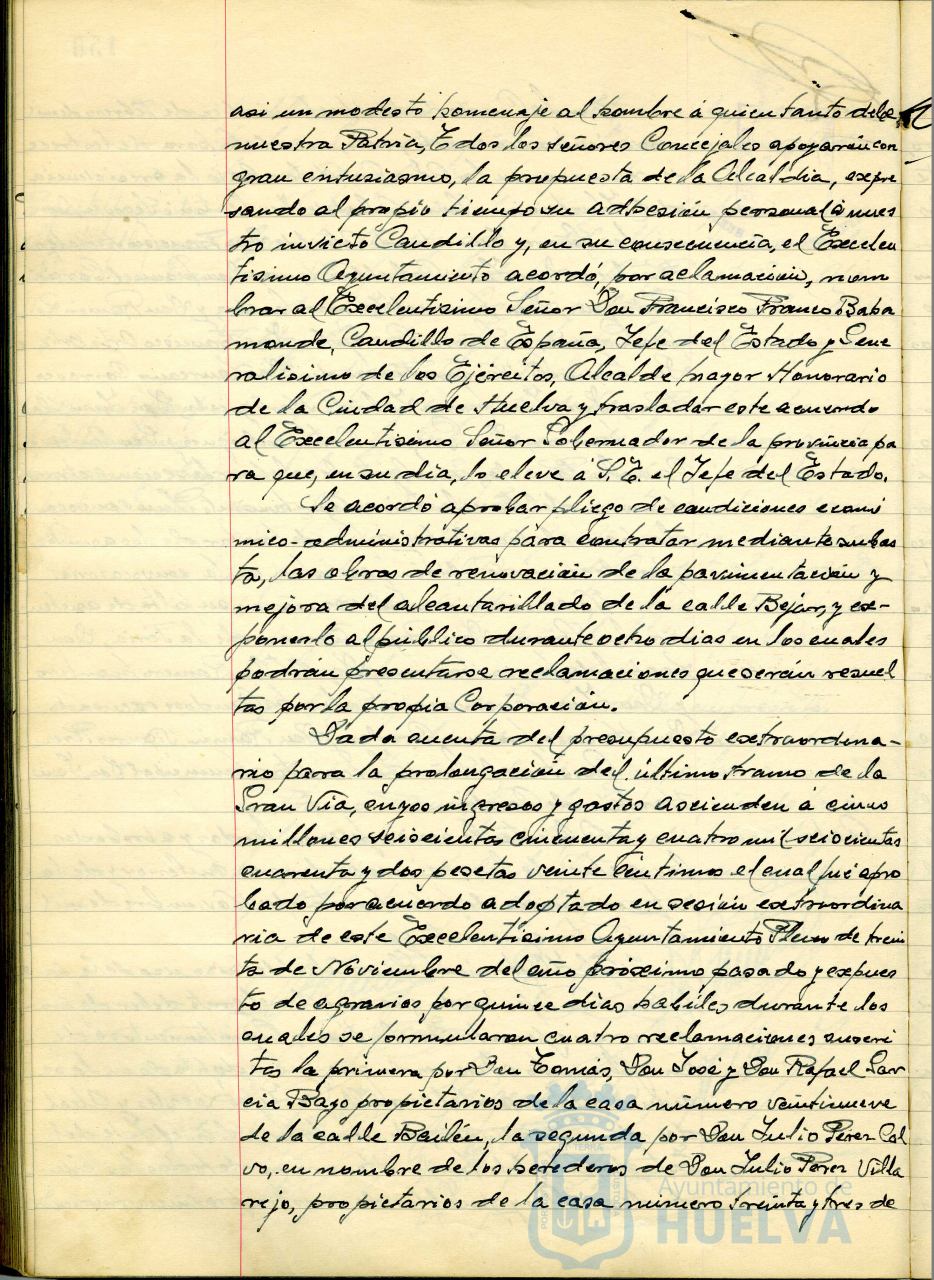 asi un modesto homenaje al hombre á quien tanto debe
nuestra Patria, Todos los señores Concejales apoyarón con
gran entusiasmo, la propuesta de la Alcaldia, expre
sando al propio tiempo su adhesión personal á nues
tro invicto Caudillo y, en su consecuencia, el Excelen
tisimo Ayuntamiento acordó, por aclamación, nom
brar al Excelentisimo Señor Don Francisco Franco Baha
monde, Caudillo de España, Jefe del Estado y Gene
ralisimo de los Ejércitos, Alcalde mayor Honorario
de la Ciudad de Huelva y trasladar este acuerdo
al Excelentisimo Señor Gobernador de la provincia pa
ra que, en su dia, lo eleve á S. E. el Jefe del Estado.
Se acordó aprobar pliego de condiciones econó
mico-administrativas para contratar mediante subas
ta, las obras de renovación de la pavimentación y
mejora del alcantarillado de la calle Bejar, y ex-
ponerlo al público durante ocho dias en los cuales
podrán presentarse reclamaciones que serán resuel
tas por la propia Corporación.
Dada cuenta del presupuesto extraordina-
rio para la prolongación del último tramo de la
Gran Via, cuyos ingresos y gastos ascienden á cinco
millones seiscientas cincuenta y cuatro mil seiscientas
cuarenta y dos pesetas veinte centimos el cual fué apro
bado por acuerdo adoptado en sesión extraordina
ria de este Excelentisimo Ayuntamiento Pleno de trein
ta de Noviembre del año próximo pasado y expues
to de agravios por quince dias habiles durante los
cuales se formularon cuatro reclamaciones suscri
tas la primera por Don Tomás, Don José y Don Rafael Gar
cia Bago propietarios de la casa número veintinueve
de la calle Bailén, la segunda por Don Julio Pérez Cal
vo, en nombre de los herederos de Don Julio Perez Villa
rejo, propietarios de la casa número treinta y tres de
Ayuntamiento de
HUELVA